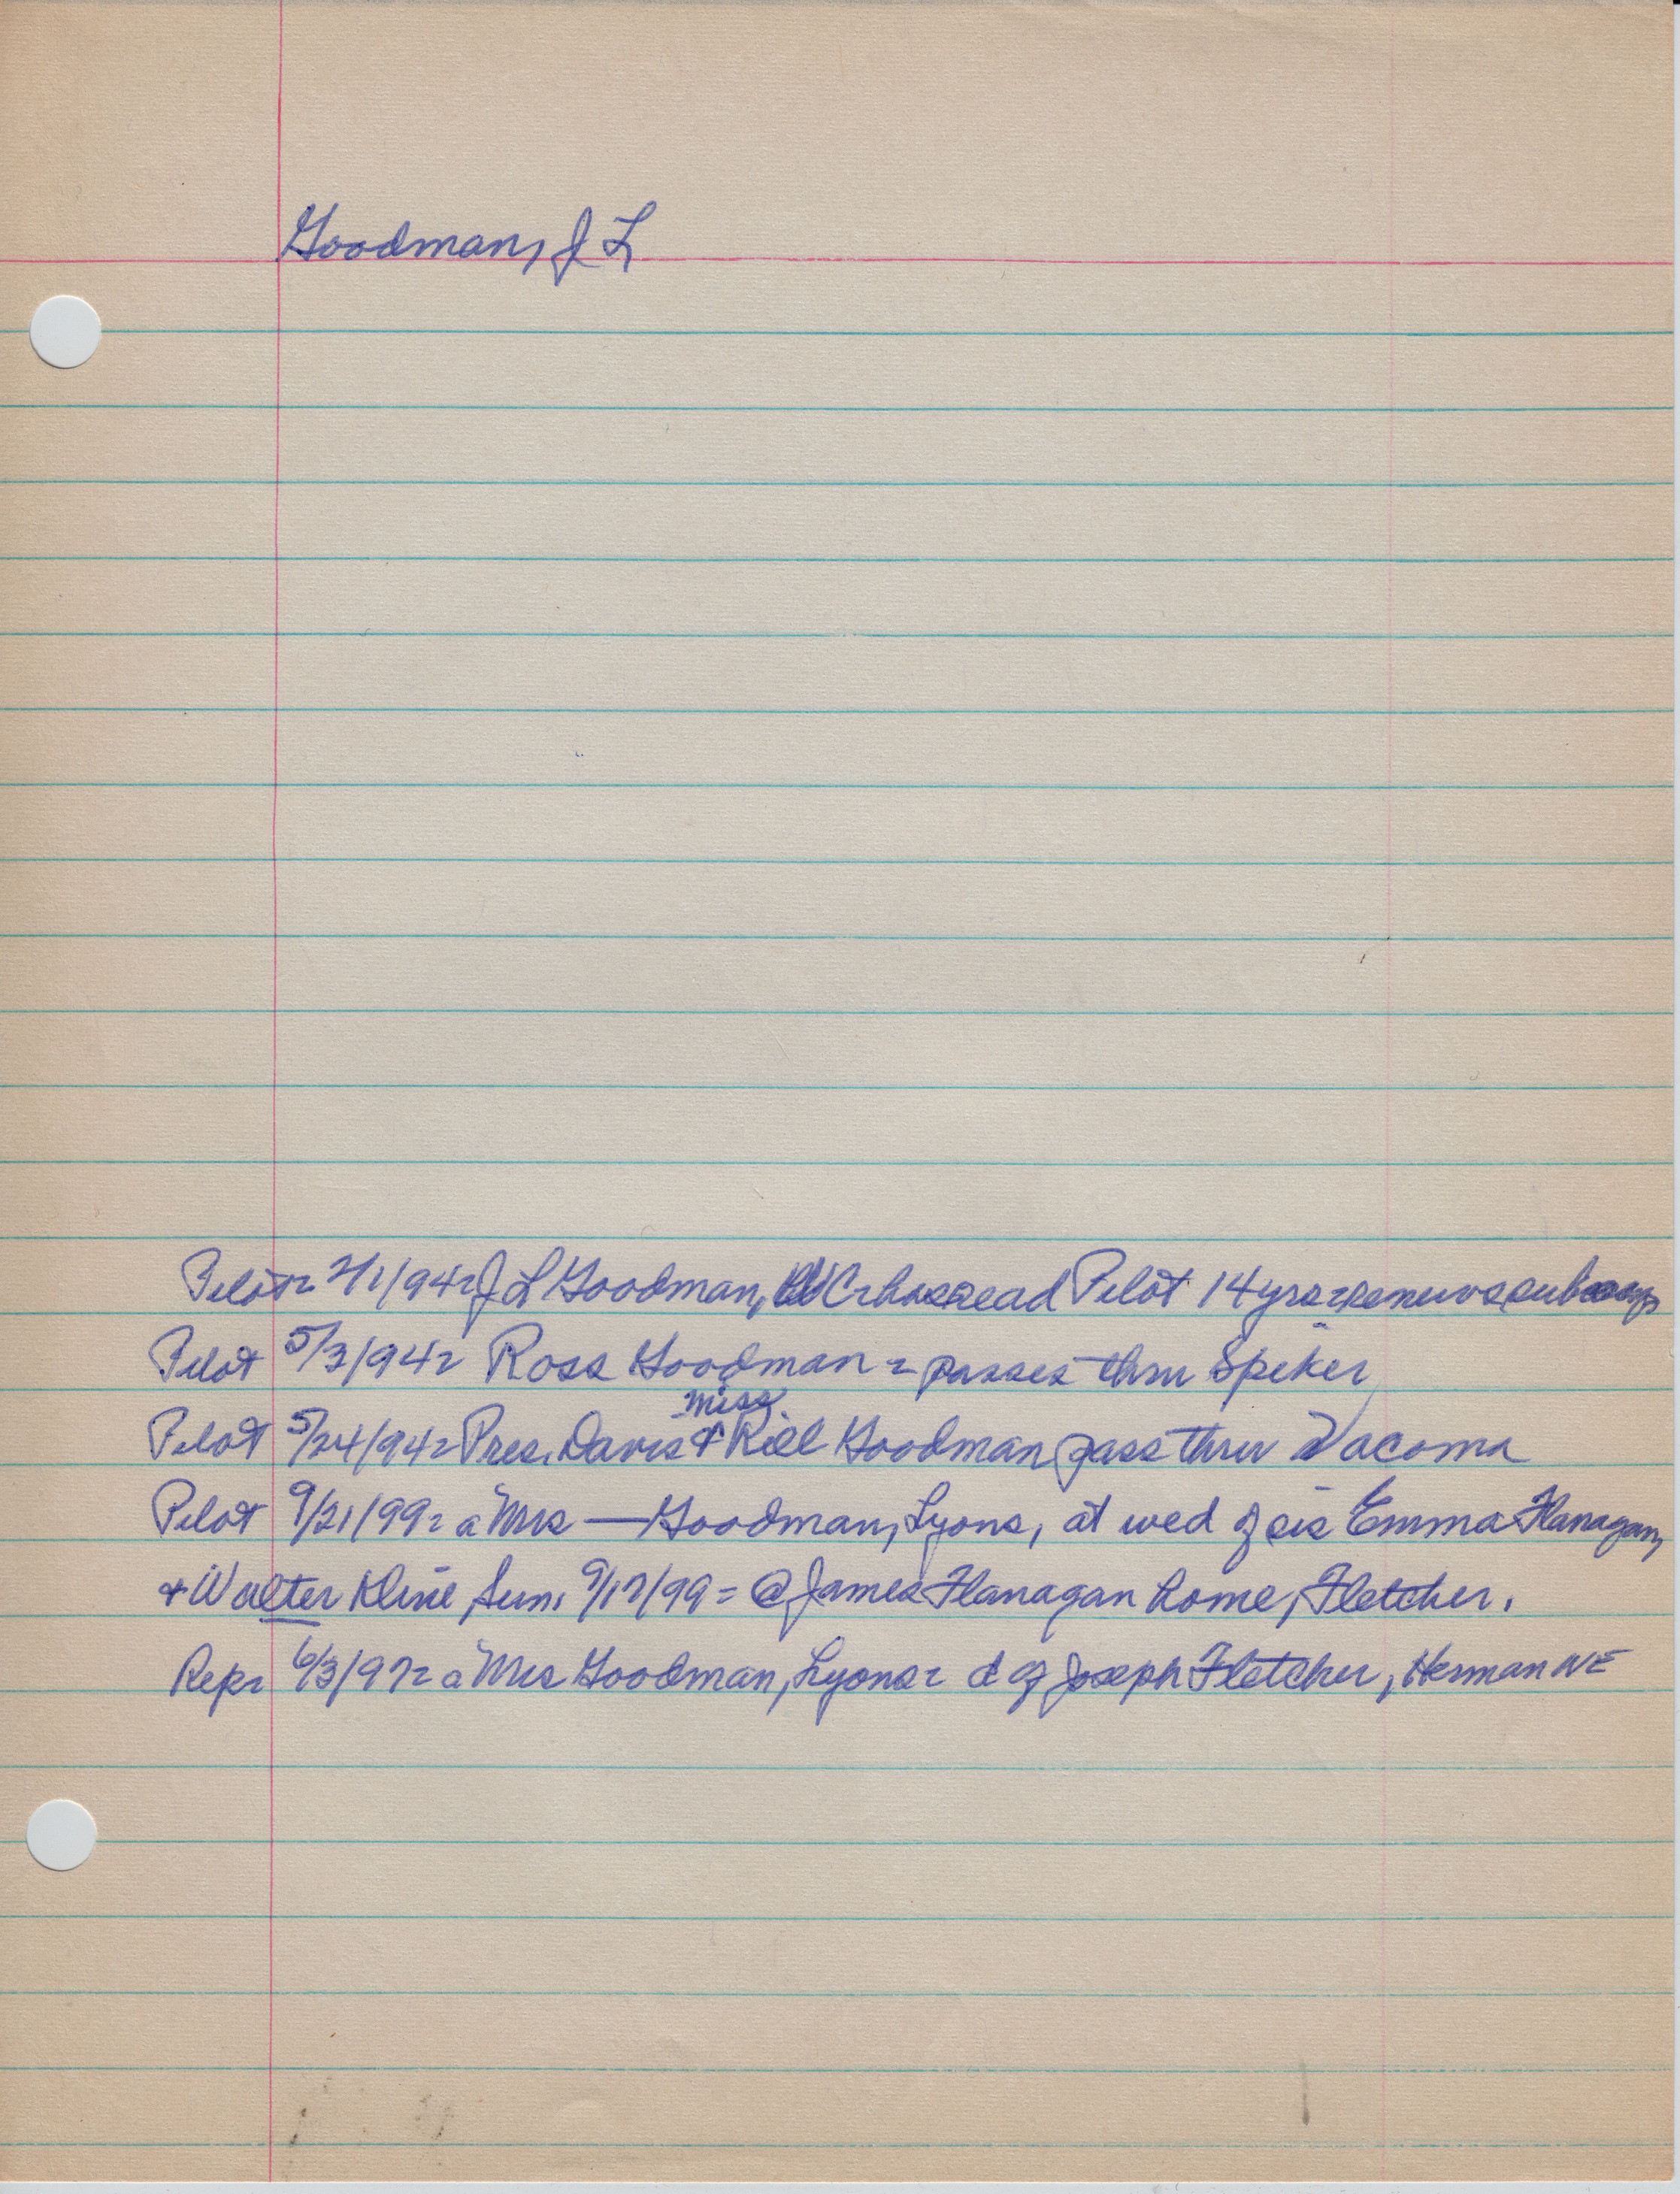 Goodman, J L
Pilot = 2/1/94 = J L Goodman, Cr has read Pilot 14 yrs = renews
Pilot 5/3/94 = Ross Goodman = passes thru Spiker
Miss
Pilot 5/24/94 = Pres. Davis & Goodman pass thru Vacoma
Pilot 9/21/99 = a Mrs — Goodman, Lyons, at wed of sis Emma Flanagan,
& Walter Kline, Sun. 9/17/99 = @ James Flanagan home, Fletcher.
Rep = 6/3/97 = a Mrs Goodman, Lyons = d of Joseph Fletcher, Herman NE